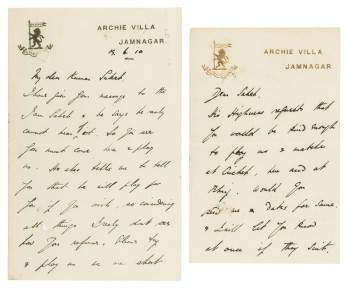 ARCHIE VILLA
JAMNAGAR
My dear Kumar Saheb
I have given your message to the
Jam Saheb & he says he really
cannot have it. So you see
You must come here & play
us. He also tells me to tell
you that he will play for
you if you wish, so considering
all things I really don't see
how you refuse. Please try
& play us as we should
ARCHIE VILLA
JAMNAGAR.
Dear Saheb.
His Highness requests that
you would be kind enough
to play us 2 matches
at Cricket, here and at
Would you
send us 2 Dates for same.
& I will let you know
at once if they suit.